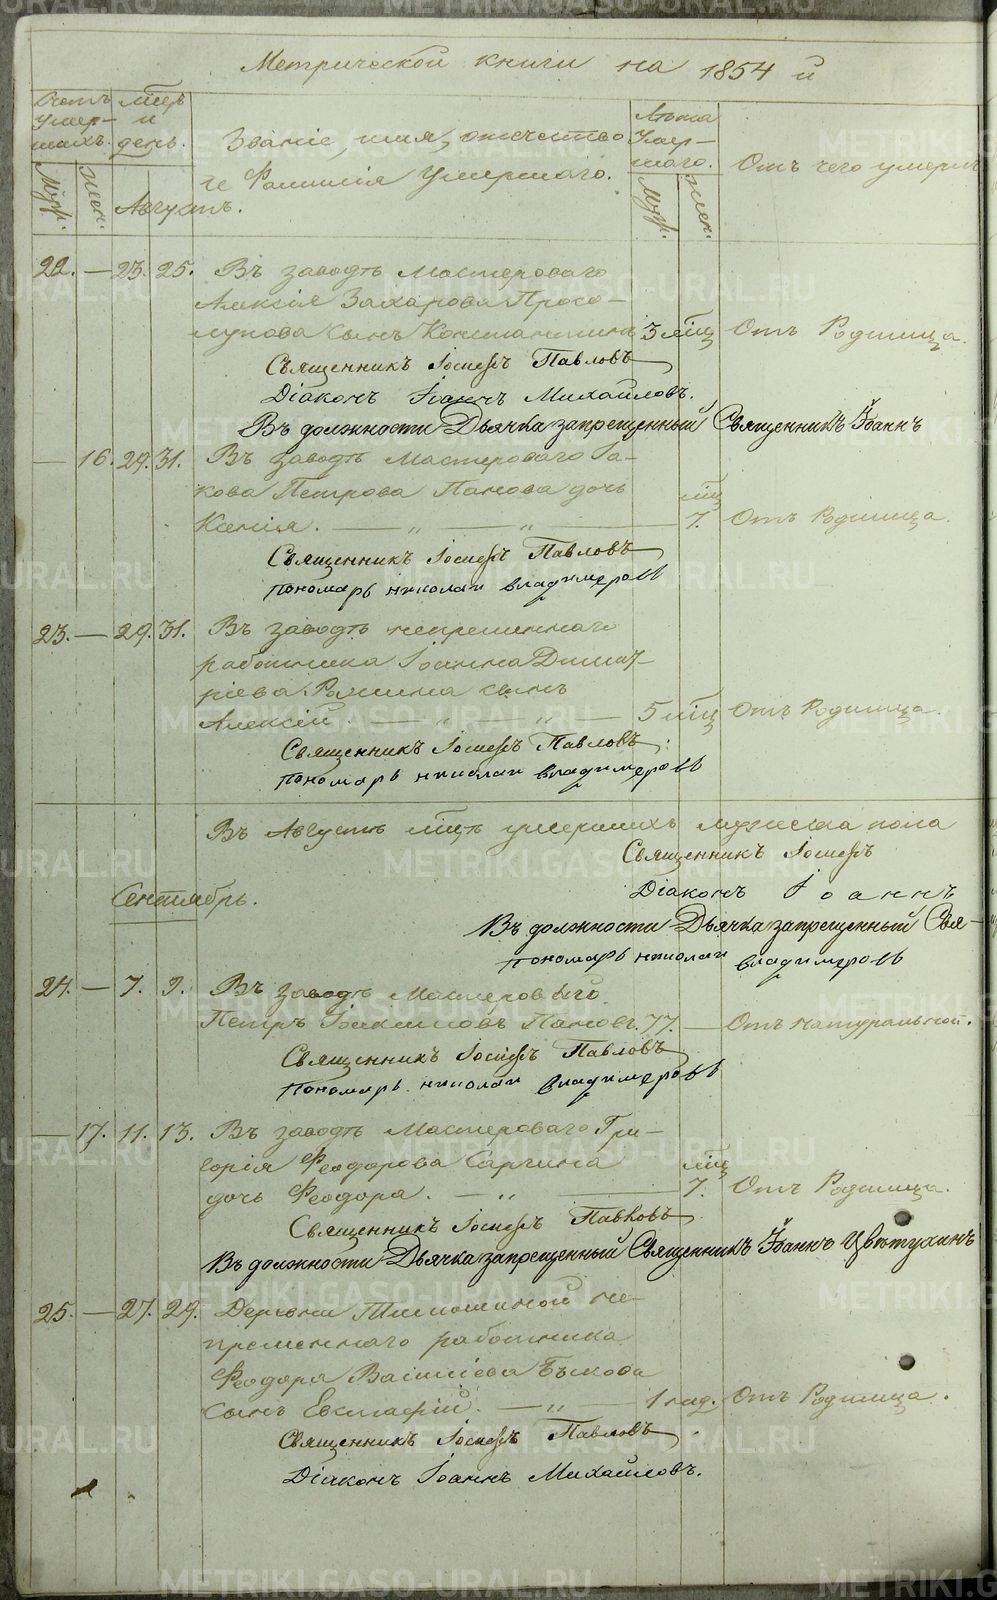 Метрической книги на 1854 й
Счетъ Умер-шихъ. Мѣсяцъ и день. Званіе, имя, отчество и Фамилія Умершаго. Лѣта Умер-шаго. Отъ чего умеръ
Муж. Жен. Августъ. Муж. Жен.
22. — 23. 25. Въ заводѣ Мастероваго
Алексія Захарова Просо-
лупова сынъ Константинъ 3 мѣц Отъ Родимца.
Священникъ Іосифъ Павловъ
Діаконъ Іоаннъ Михайловъ.
Въ должности Дьячка запрещенный Священникъ Іоаннъ
— 16. 29. 31. Въ заводѣ Мастероваго Іа-
кова Петрова Панова дочь
Ксенія. — „ — „ — 7. мѣц Отъ Родимца.
Священникъ Іосифъ Павловъ
пономарь николаи владимеровъ
23. — 29. 31. Въ заводѣ непременнаго
работника Іоанна Димит-
ріева сынъ
Алексій. — „ — „ — 5 мѣц Отъ Родимца.
Священникъ Іосифъ Павловъ.
пономарь николаи владимеровъ
Въ Августѣ мѣцѣ умершихъ мужеска пола
Священникъ Іосифъ
Сентябрь.
Діаконъ Іоаннъ
Въ должности Дьячка запрещенный Свя-
пономарь николаи владимеровъ
24. — 7. 9. Въ заводѣ Мастеровый
Петръ Іоакимовъ Пановъ. 77. — Отъ натуральной.
Священникъ Іосифъ Павловъ
пономарь николаи владимеровъ
— 17. 11. 13. Въ заводѣ Мастероваго Гри-
горія Феодорова Саргина
дочь Феодора. — „ — 7. мѣц Отъ Родимца.
Священникъ Іосифъ Павловъ
Въ должности Дьячка запрещенный Священникъ Іоаннъ Цвѣтухинъ
25. — 27. 29. Деревни Тимошиной не-
пременнаго работника
Феодора Василіева Быкова
сынъ Евстафій. — „ — 1 год. Отъ Родимца.
Священникъ Іосифъ Павловъ
Діаконъ Іоаннъ Михайловъ.
METRIKI.GASO-URAL.RU